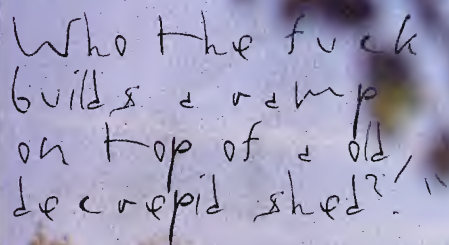 Who the fuck
builds a ramp
on top of a old
decrepid shed?!"